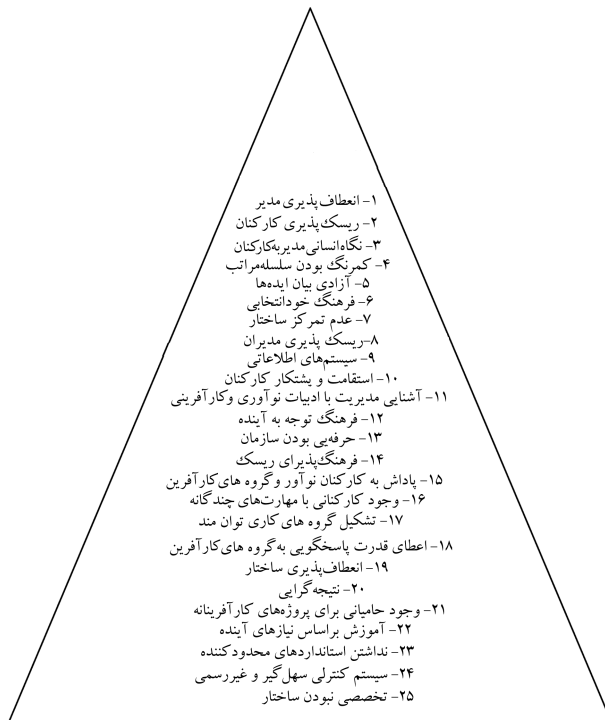 ۱- انعطاف‌پذیری مدیر
۲- ریسک‌پذیری کارکنان
۳- نگاه‌انسانی‌مدیربه‌کارکنان
۴- کمرنگ بودن سلسله‌مراتب
۵- آزادی بیان ایده‌ها
۶- فرهنگ خودانتخابی
۷- عدم تمرکز ساختار
۸-ریسک پذیری مدیران
۹- سیستم‌های اطلاعاتی
۱۰- استقامت و پشتکار کارکنان
۱۱- آشنایی مدیریت با ادبیات نوآوری وکارآفرینی
۱۲- فرهنگ توجه به آینده
۱۳- حرفه‌یی بودن سازمان
۱۴- فرهنگ‌پذیرای ریسک
۱۵- پاداش به کارکنان نوآور وگروه های‌کارآفرین
۱۶- وجود کارکنانی با مهارت‌های چندگانه
۱۷- تشکیل گروه های کاری توان مند
۱۸- اعطای قدرت پاسخگویی به‌گروه های‌کارآفرین
۱۹- انعطاف‌پذیری ساختار
۲۰- نتیجه‌گرایی
۲۱- وجود حامیانی برای پروژه‌های کارآفرینانه
۲۲- آموزش براساس نیازهای آینده
۲۳- نداشتن استانداردهای محدودکننده
۲۴- سیستم کنترلی سهل‌گیر و غیررسمی
۲۵- تخصصی نبودن ساختار